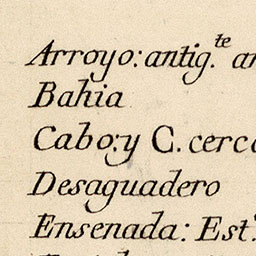 Arroyo: antig.te
Bahia
Cabo: y C. cerca
Desaguadero
Ensenada: Est.